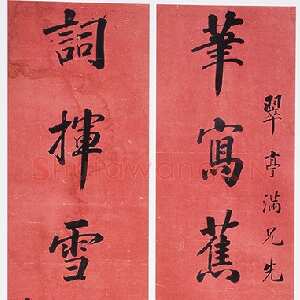 翠亭滿兄先
筆寫蕉
詞揮雪